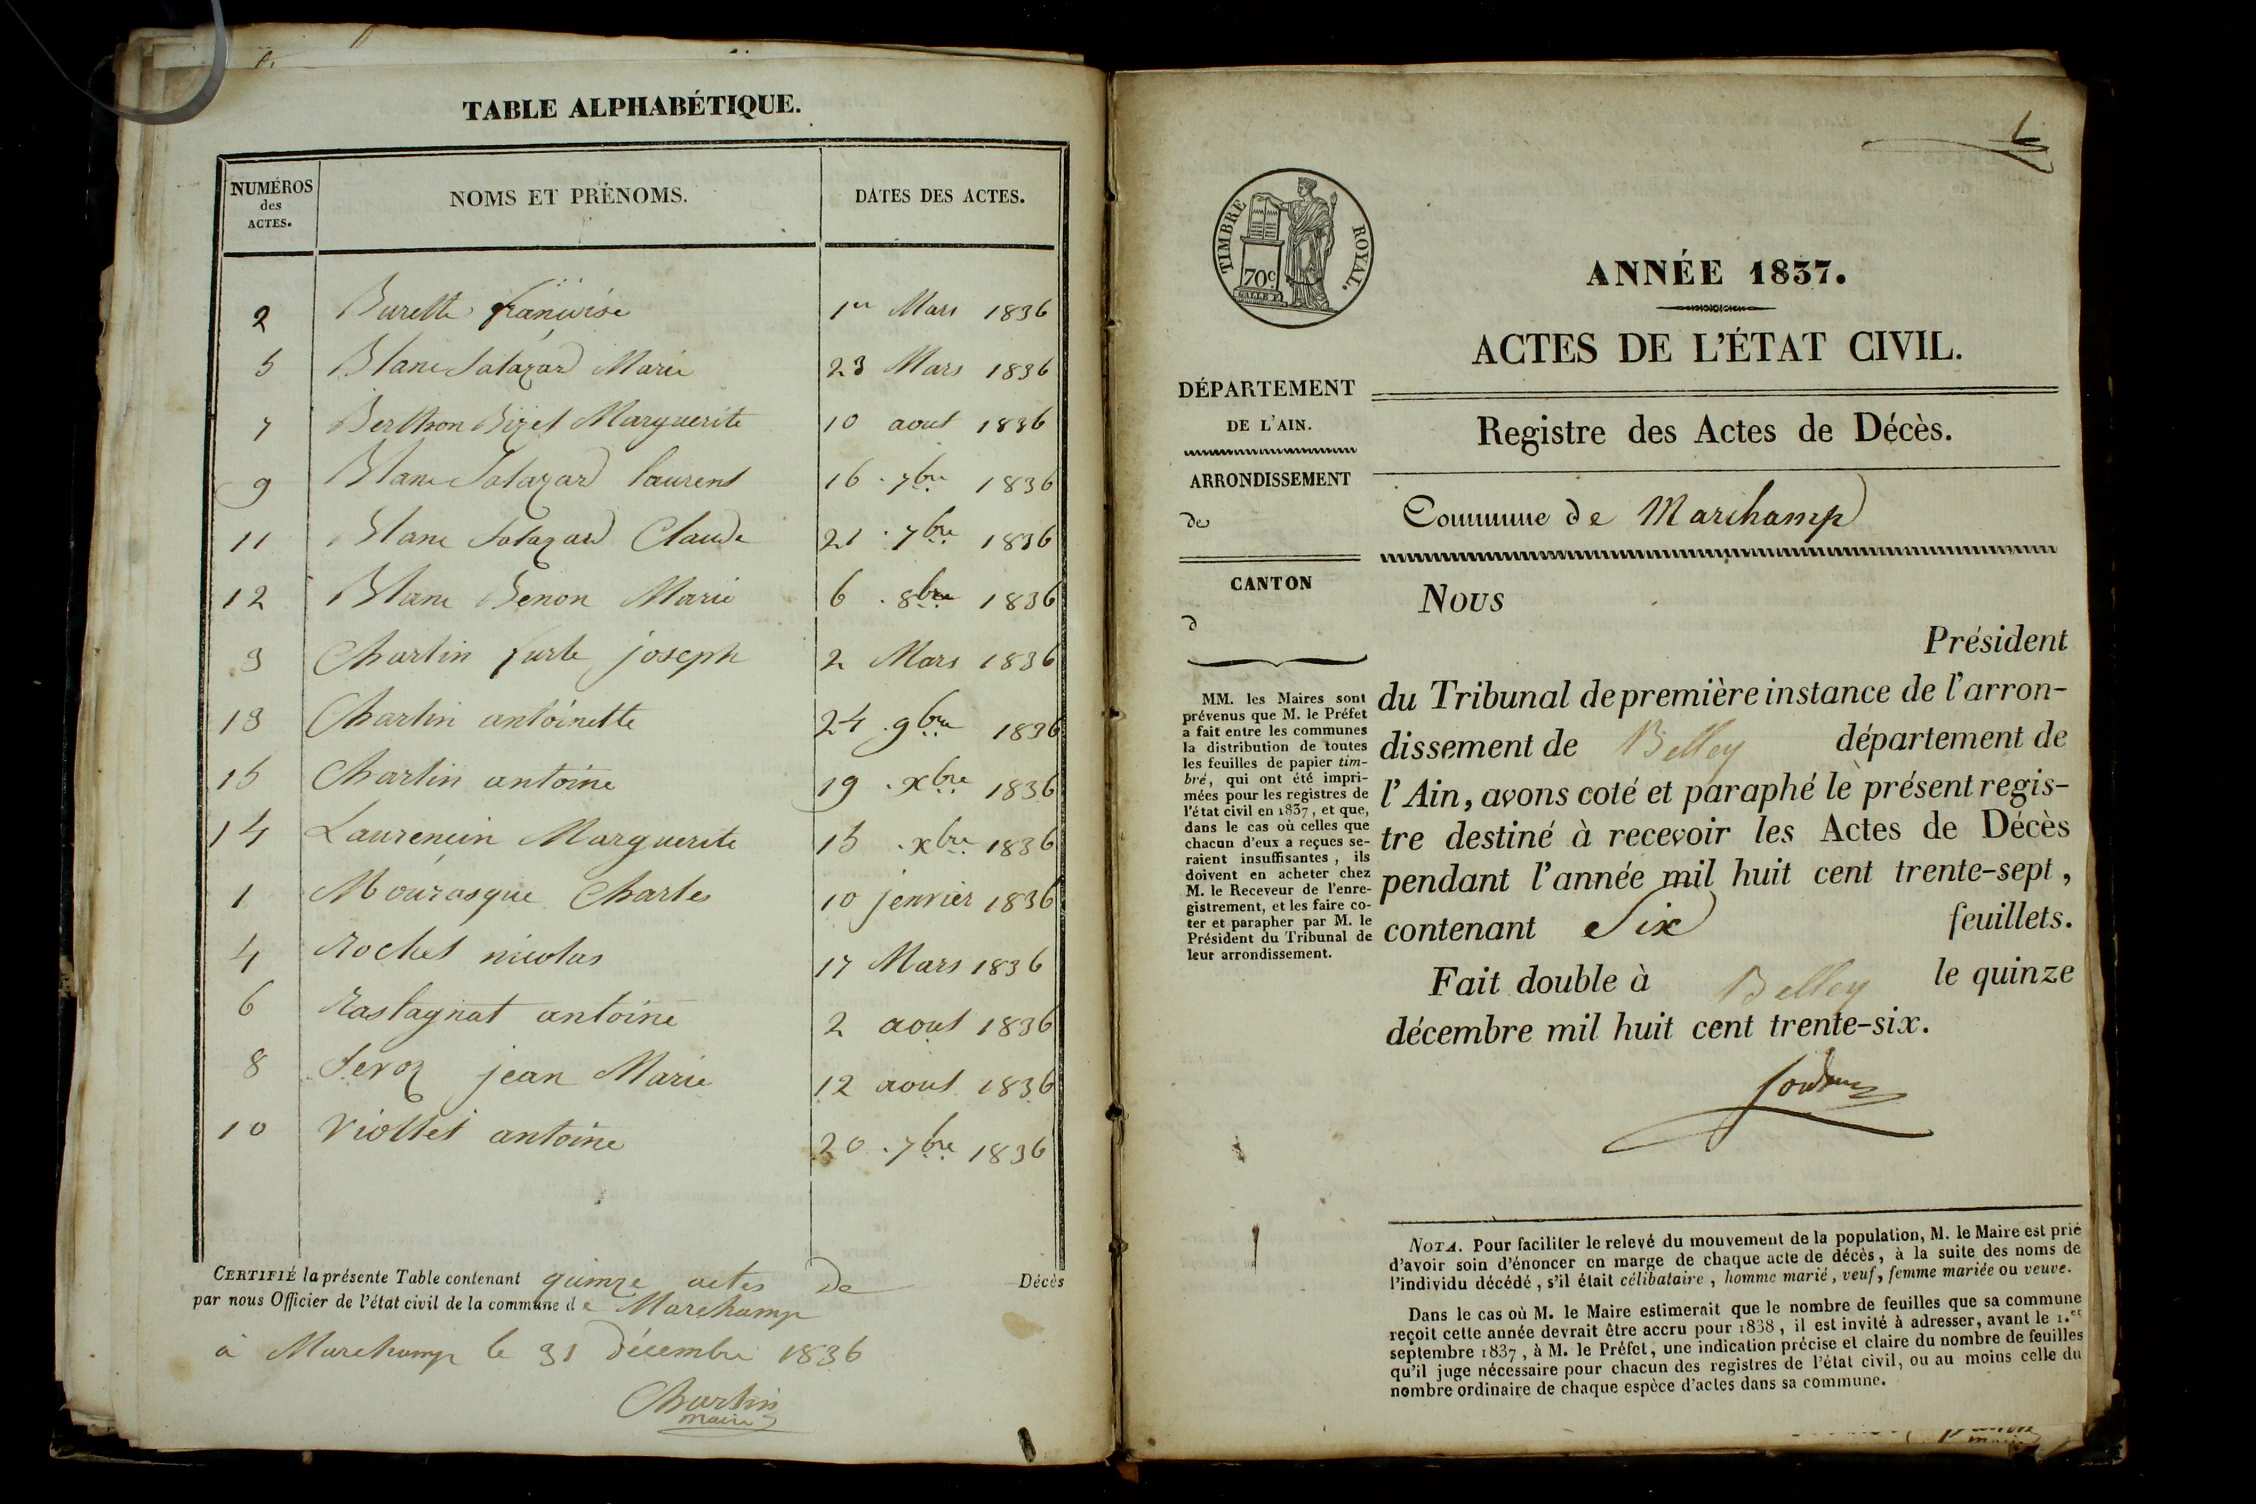 TABLE ALPHABÉTIQUE.
NUMÉROS
des
ACTES.
NOMS ET PRÉNOMS.
DATES DES ACTES.
2 Burette françoise 1er Mars 1836
5 Blanc Salazard Marie 23 Mars 1836
7 Berthon Bizet Marguerite 10 aout 1836
9 Blanc Salazard laurent 16 7bre 1836
11 Blanc Salazard Claude 21 7bre 1836
12 Blanc Benon Marie 6 8bre 1836
3 Chartin furte joseph 2 Mars 1836
13 Chartin antoinette 24 9bre 1836
15 Chartin antoine 19 xbre 1836
14 Laurencin Marguerite 15 xbre 1836
1 Mourasque Charles 10 jenvier 1836
4 Rochet nicolas 17 Mars 1836
6 Rastagnat antoine 2 aout 1836
8 Sevoz jean Marie 12 aout 1836
10 Viollet antoine 20 7bre 1836
CERTIFIÉ la présente Table contenant quinze actes de Décès
par nous Officier de l'état civil de la commune de Marchamp
à Marchamp le 31 décembre 1836
Chartin
maire
TIMBRE ROYAL.
70c
ANNÉE 1837.
ACTES DE L'ÉTAT CIVIL.
DÉPARTEMENT
DE L'AIN.
Registre des Actes de Décès.
ARRONDISSEMENT
de
Commune de Marchamp
CANTON
d
MM. les Maires sont
prévenus que M. le Préfet
a fait entre les communes
la distribution de toutes
les feuilles de papier tim-
bré, qui ont été impri-
mées pour les registres de
l'état civil en 1837, et que,
dans le cas où celles que
chacun d'eux a reçues se-
raient insuffisantes, ils
doivent en acheter chez
M. le Receveur de l'enre-
gistrement, et les faire co-
ter et parapher par M. le
Président du Tribunal de
leur arrondissement.
Nous
Président
du Tribunal de première instance de l'arron-
dissement de Belley département de
l'Ain, avons coté et paraphé le présent regis-
tre destiné à recevoir les Actes de Décès
pendant l'année mil huit cent trente-sept,
contenant Six feuillets.
Fait double à Belley le quinze
décembre mil huit cent trente-six.
NOTA. Pour faciliter le relevé du mouvement de la population, M. le Maire est prié
d'avoir soin d'énoncer en marge de chaque acte de décès, à la suite des noms de
l'individu décédé, s'il était célibataire, homme marié, veuf, femme mariée ou veuve.
Dans le cas où M. le Maire estimerait que le nombre de feuilles que sa commune
reçoit cette année devrait être accru pour 1838, il est invité à adresser, avant le 1.er
septembre 1837, à M. le Préfet, une indication précise et claire du nombre de feuilles
qu'il juge nécessaire pour chacun des registres de l'état civil, ou au moins celle du
nombre ordinaire de chaque espèce d'actes dans sa commune.